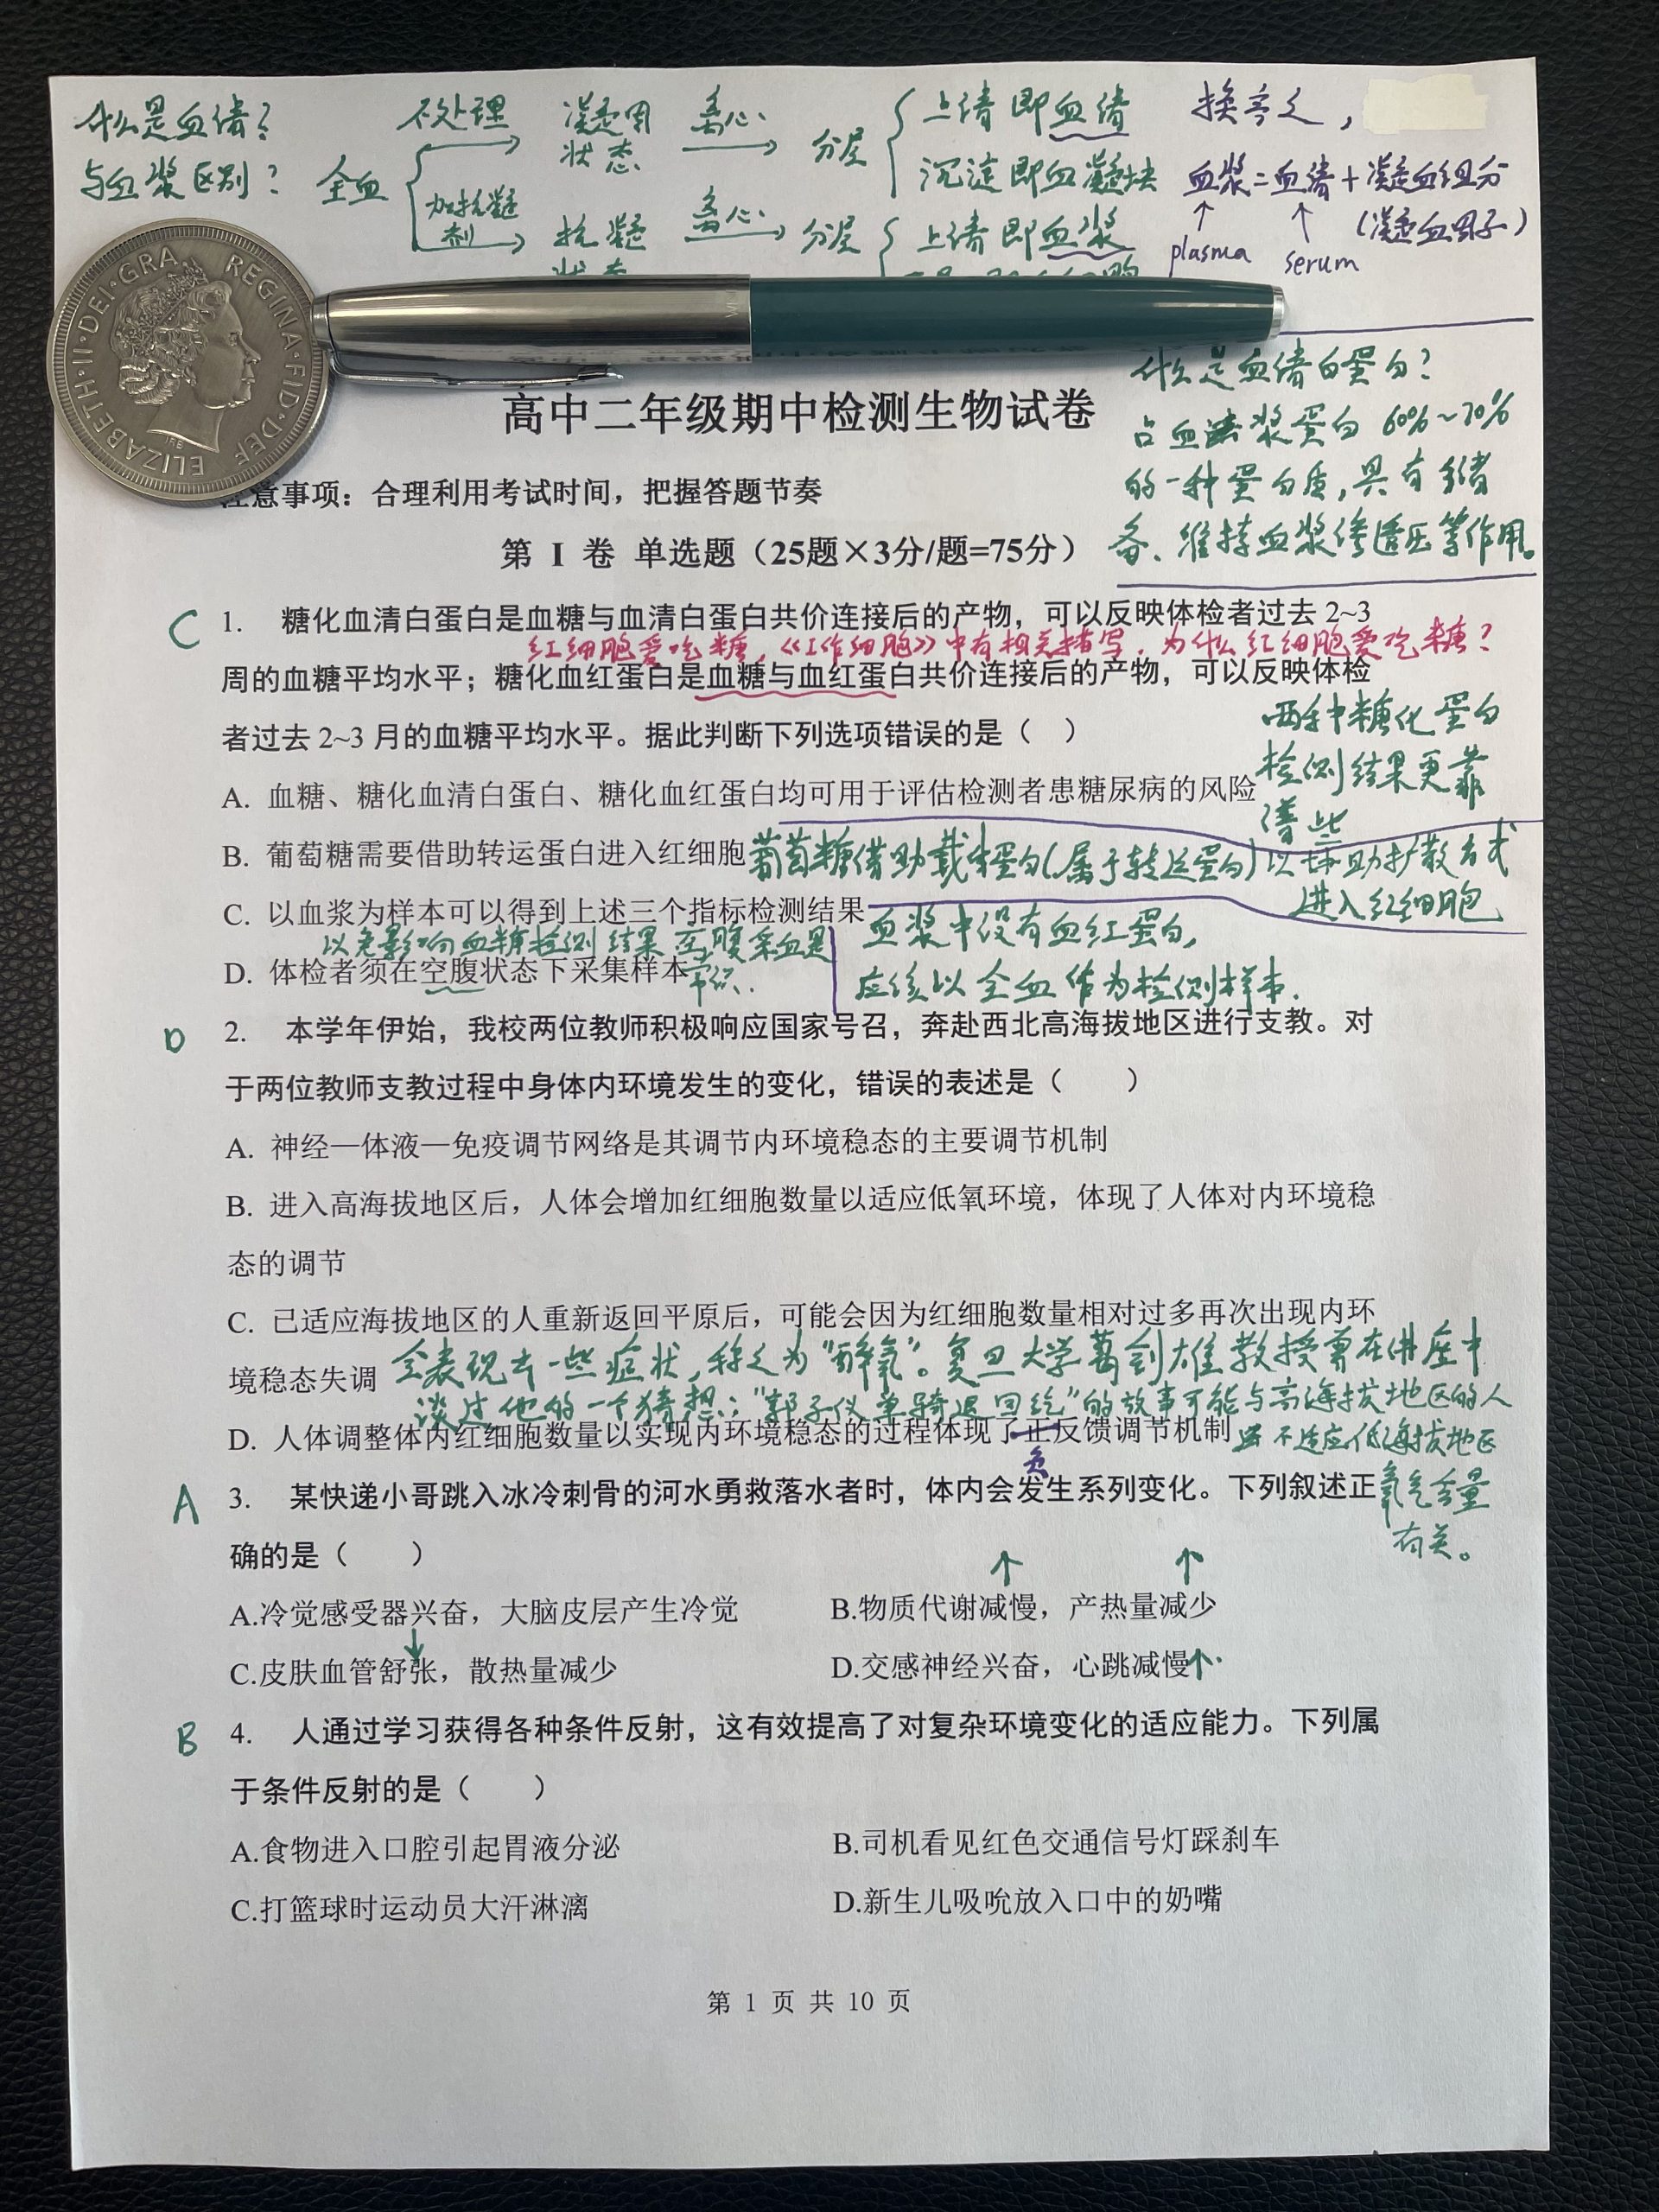 什么是血清？
与血浆区别？
全血
不处理
凝固
状态
离心
分层
上清即血清
沉淀即血凝块
加抗凝
剂
抗凝
状态
离心
分层
上清即血浆
换言之，
血浆=血清+凝血组分
（凝血因子）
plasma
serum
ELIZABETH·II·DEI·GRA
REGINA·FID·DEF
IRB
高中二年级期中检测生物试卷
什么是血清白蛋白？
占血浆蛋白60%~70%
的一种蛋白质，具有储
备、维持血浆渗透压等作用。
注意事项：合理利用考试时间，把握答题节奏
第 I 卷 单选题（25题×3分/题=75分）
C
1. 糖化血清白蛋白是血糖与血清白蛋白共价连接后的产物，可以反映体检者过去 2~3
红细胞爱吃糖，《工作细胞》中有相关描写，为什么红细胞爱吃糖？
周的血糖平均水平；糖化血红蛋白是血糖与血红蛋白共价连接后的产物，可以反映体检
者过去 2~3 月的血糖平均水平。据此判断下列选项错误的是（ ）
A. 血糖、糖化血清白蛋白、糖化血红蛋白均可用于评估检测者患糖尿病的风险
两种糖化蛋白
检测结果更靠
谱些
B. 葡萄糖需要借助转运蛋白进入红细胞
葡萄糖借助载体蛋白（属于转运蛋白）以协助扩散方式
进入红细胞
C. 以血浆为样本可以得到上述三个指标检测结果
血浆中没有血红蛋白，
应该以全血作为检测样本.
以免影响血糖检测结果 空腹采血是
常识.
D. 体检者须在空腹状态下采集样本
D
2. 本学年伊始，我校两位教师积极响应国家号召，奔赴西北高海拔地区进行支教。对
于两位教师支教过程中身体内环境发生的变化，错误的表述是（ ）
A. 神经—体液—免疫调节网络是其调节内环境稳态的主要调节机制
B. 进入高海拔地区后，人体会增加红细胞数量以适应低氧环境，体现了人体对内环境稳
态的调节
C. 已适应海拔地区的人重新返回平原后，可能会因为红细胞数量相对过多再次出现内环
境稳态失调
会表现出一些症状，称之为“醉氧”。复旦大学葛剑雄教授曾在讲座中
谈过他的一个猜想：“郭子仪单骑退回纥”的故事可能与高海拔地区的人
不适应低海拔地区
氧气含量
有关。
D. 人体调整体内红细胞数量以实现内环境稳态的过程体现了正反馈调节机制
负
A
3. 某快递小哥跳入冰冷刺骨的河水勇救落水者时，体内会发生系列变化。下列叙述正
确的是（ ）
A.冷觉感受器兴奋，大脑皮层产生冷觉
B.物质代谢减慢，产热量减少
C.皮肤血管舒张，散热量减少
D.交感神经兴奋，心跳减慢
B
4. 人通过学习获得各种条件反射，这有效提高了对复杂环境变化的适应能力。下列属
于条件反射的是（ ）
A.食物进入口腔引起胃液分泌
B.司机看见红色交通信号灯踩刹车
C.打篮球时运动员大汗淋漓
D.新生儿吸吮放入口中的奶嘴
第 1 页 共 10 页